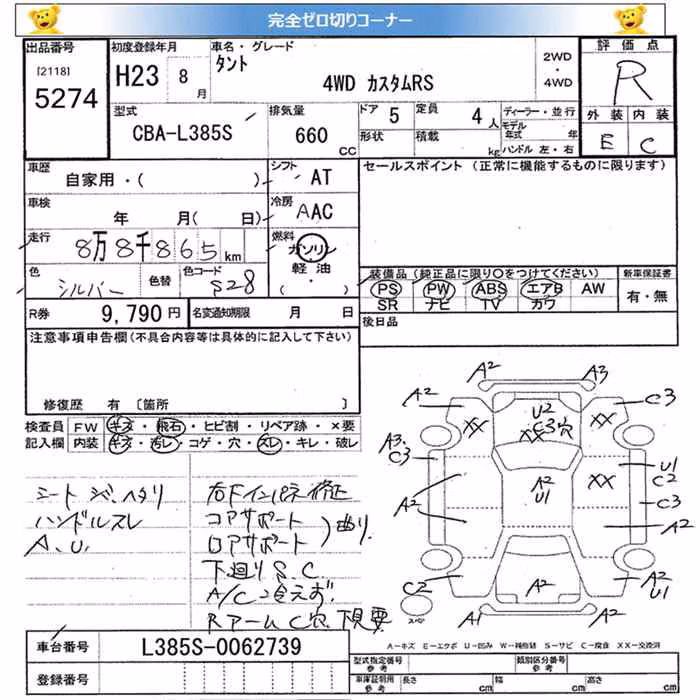 完全ゼロ切りコーナー
出品番号
[2118]
5274
初度登録年月
H23 8 月
車名・グレード
タント
4WD カスタムRS
2WD
・
4WD
評価点
R
外装 内装
E C
型式
CBA-L385S
排気量
660 CC
ドア 5
定員 4 人
形状
積載 kg
ディーラー・並行
モデル年式 年
ハンドル 左・右
車歴
自家用・( )
シフト AT
車検
年 月( 日)
冷房 AAC
走行
8万8千865 km
燃料
ガソリン
軽油
( ・ )
色 シルバー
色替
色コード S28
R券 9,790 円
名変通知期限 月 日
セールスポイント (正常に機能するものに限ります)
装備品 (純正品に限り○をつけてください)
PS PW ABS エアB AW
SR ナビ TV カワ
新車保証書
有・無
後日品
注意事項申告欄(不具合内容等は具体的に記入して下さい)
修復歴 有 〔箇所
検査員記入欄
FW キズ・飛石・ヒビ割・リペア跡・×要
内装 キズ・汚レ・コゲ・穴・スレ・キレ・破レ
シートシワ、ヘタリ
ハンドルスレ
A、U、
右Fインパネ修正
コアサポート
ロアサポート
曲り、
下廻りS、C
A/C冷えず
RアームC穴 下見要
A2
A3
A2
C3
XX
U2
C3穴
XX
XX
A3
C3
A2
A2
U1
XX
U1
C2
C3
A2
C2
A2
A2
U1
スペア
A1
A2
車台番号 L385S-0062739
登録番号
A－キズ E－エクボ U－凹み W－補修跡 S－サビ C－腐食 XX－交換済
型式指定番号 参考
類別区分番号 参考
車庫証明用 参考 長さ cm 幅 cm 高さ cm